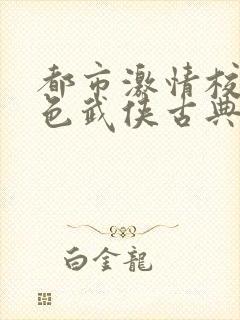 都市激情校
色武侠古典
白金龍